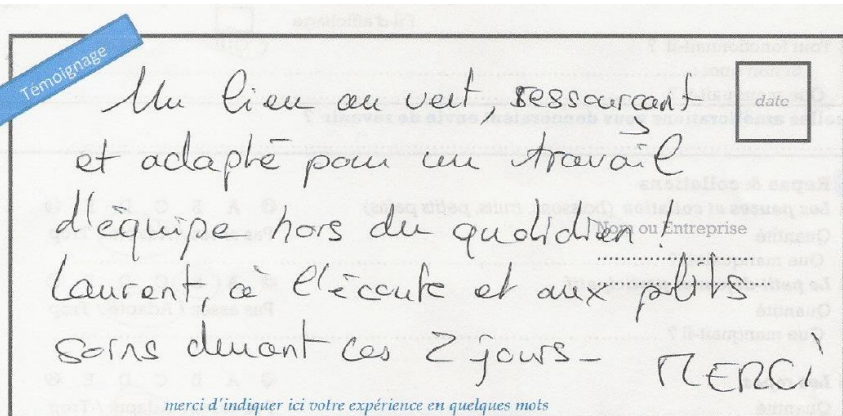 Témoignage
Un lieu au vert, ressourçant
date
et adapté pour un travail
d'équipe hors du quotidien !
Nom ou Entreprise
Laurent, à l'écoute et aux petits
soins durant ces 2 jours - MERCI
merci d'indiquer ici votre expérience en quelques mots